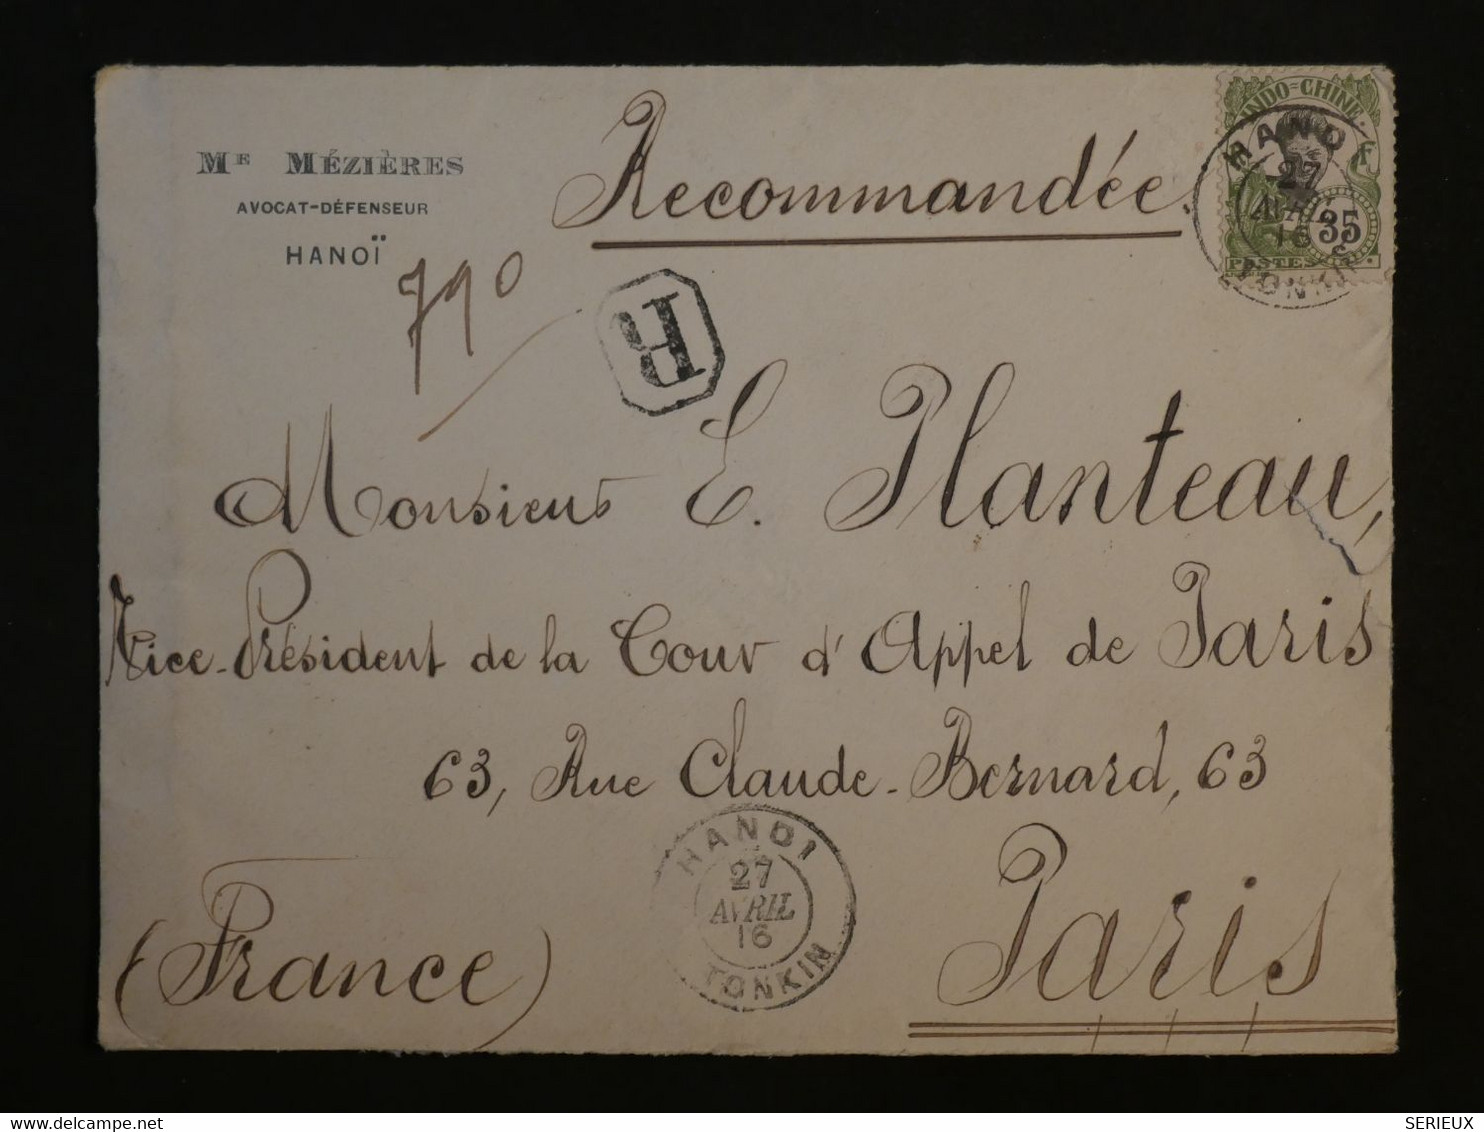 Mᴱ MÉZIÈRES
AVOCAT-DÉFENSEUR
HANOÏ
Recommandée
INDO=CHINE
F
35
POSTES
HANOI
27
AVRIL
16
TONKIN
790
R
Monsieur E. Planteau,
Vice-Président de la Cour d'Appel de Paris
63, Rue Claude-Bernard, 63
(France)
Paris
HANOI
27
AVRIL
16
TONKIN
SERIEUX